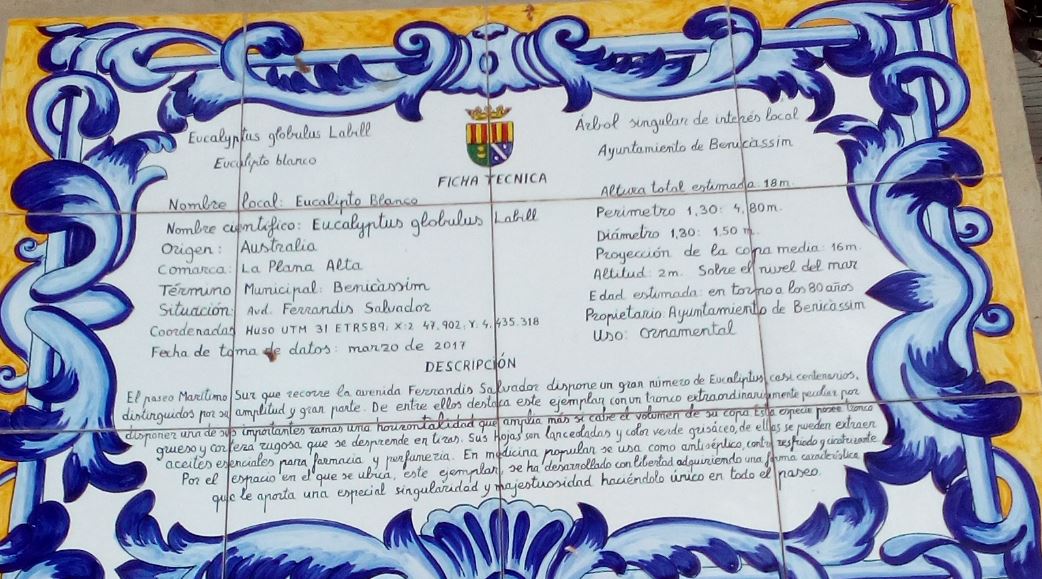 Eucalyptus globulus Labill
Eucalipto blanco
Árbol singular de interés local
Ayuntamiento de Benicàssim
FICHA TECNICA
Nombre local: Eucalipto Blanco
Nombre científico: Eucalyptus globulus Labill
Origen: Australia
Comarca: La Plana Alta
Término Municipal: Benicàssim
Situación: Avd. Ferrandis Salvador
Coordenadas HUSO UTM 31 ETRS89: X:2 47.902; Y: 4.435.318
Fecha de toma de datos: marzo de 2017
Altura total estimada: 18m.
Perimetro 1,30: 4,80m.
Diámetro 1,30: 1,50 m.
Proyección de la copa media: 16m.
Altitud: 2m. Sobre el nivel del mar
Edad estimada: en torno a los 80 años
Propietario Ayuntamiento de Benicàssim
Uso: Ornamental
DESCRIPCIÓN
El paseo Marítimo Sur que recorre la avenida Ferrandis Salvador dispone un gran número de Eucaliptus, casi centenarios,
distinguidos por su amplitud y gran parte. De entre ellos destaca este ejemplar, con un tronco extraordinariamente peculiar por
disponer una de sus importantes ramas una horizontalidad que amplia más si cabe el volumen de su copa. Esta especie posee tronco
grueso y corteza rugosa que se desprende en tiras. Sus hojas son lanceoladas y color verde grisáceo, de ellas se pueden extraer
aceites esenciales para farmacia y perfumeria. En medicina popular se usa como antiséptico, contra resfriado y cicatrizante.
Por el espacio en el que se ubica, este ejemplar, se ha desarrollado con libertad adquiriendo una forma característica
que le aporta una especial singularidad y majestuosidad haciéndolo único en todo el paseo.